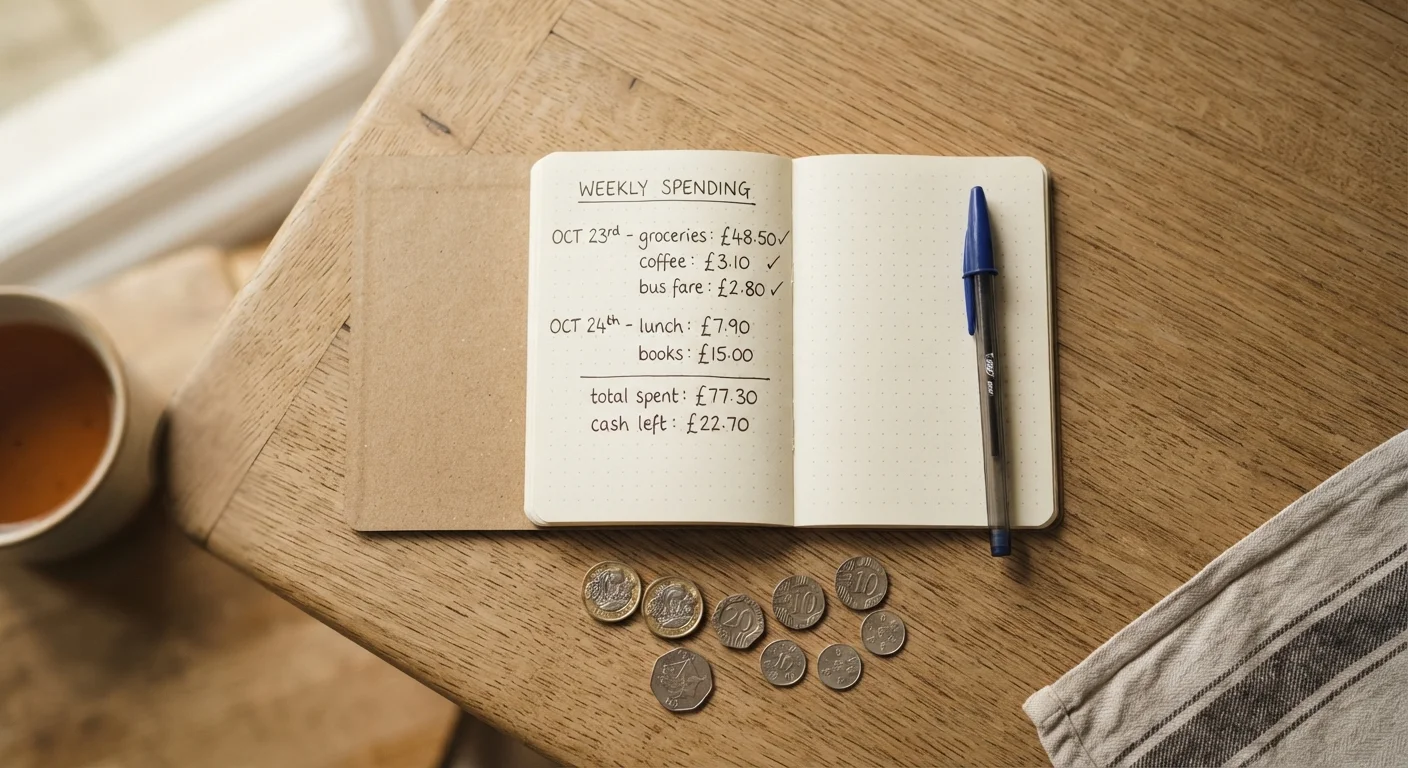 WEEKLY SPENDING
OCT 23rd - groceries: £48.50 ✓
coffee: £3.10 ✓
bus fare: £2.80 ✓
OCT 24th - lunch: £7.90
books: £15.00
total spent: £77.30
cash left: £22.70
10
10